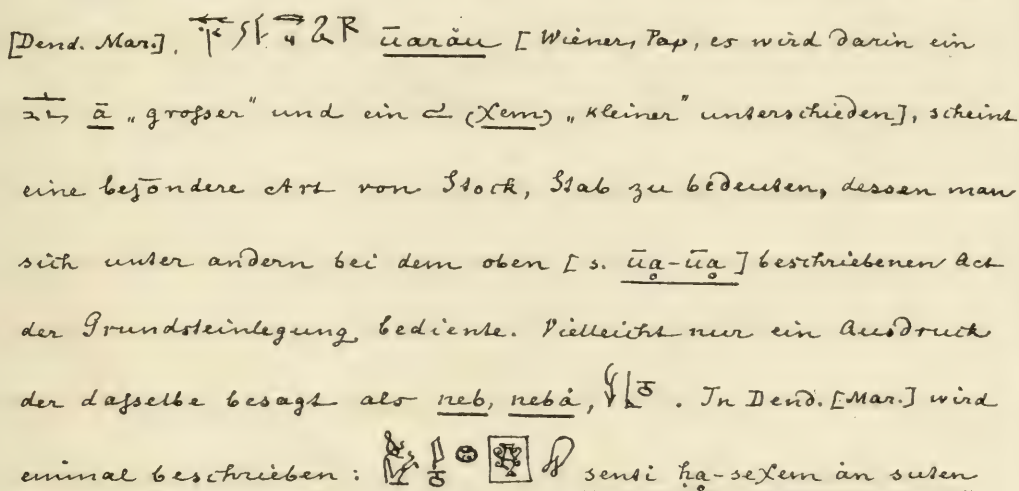 [Dend. Mar.], ūarāu [Wiener, Pap, es wird darin ein
ā „großer“ und ein (χem) „kleiner“ unterschieden], scheint
eine besondere Art von Stock, Stab zu bedeuten, dessen man
sich unter andern bei dem oben [s. ūḁ-ūḁ] beschriebenen Act
der Grundsteinlegung bediente. Vielleicht nur ein Ausdruck
der dasselbe besagt als neb, nebȧ, . In Dend. [Mar.] wird
einmal beschrieben: senti ḥḁ-seχem ȧn suten